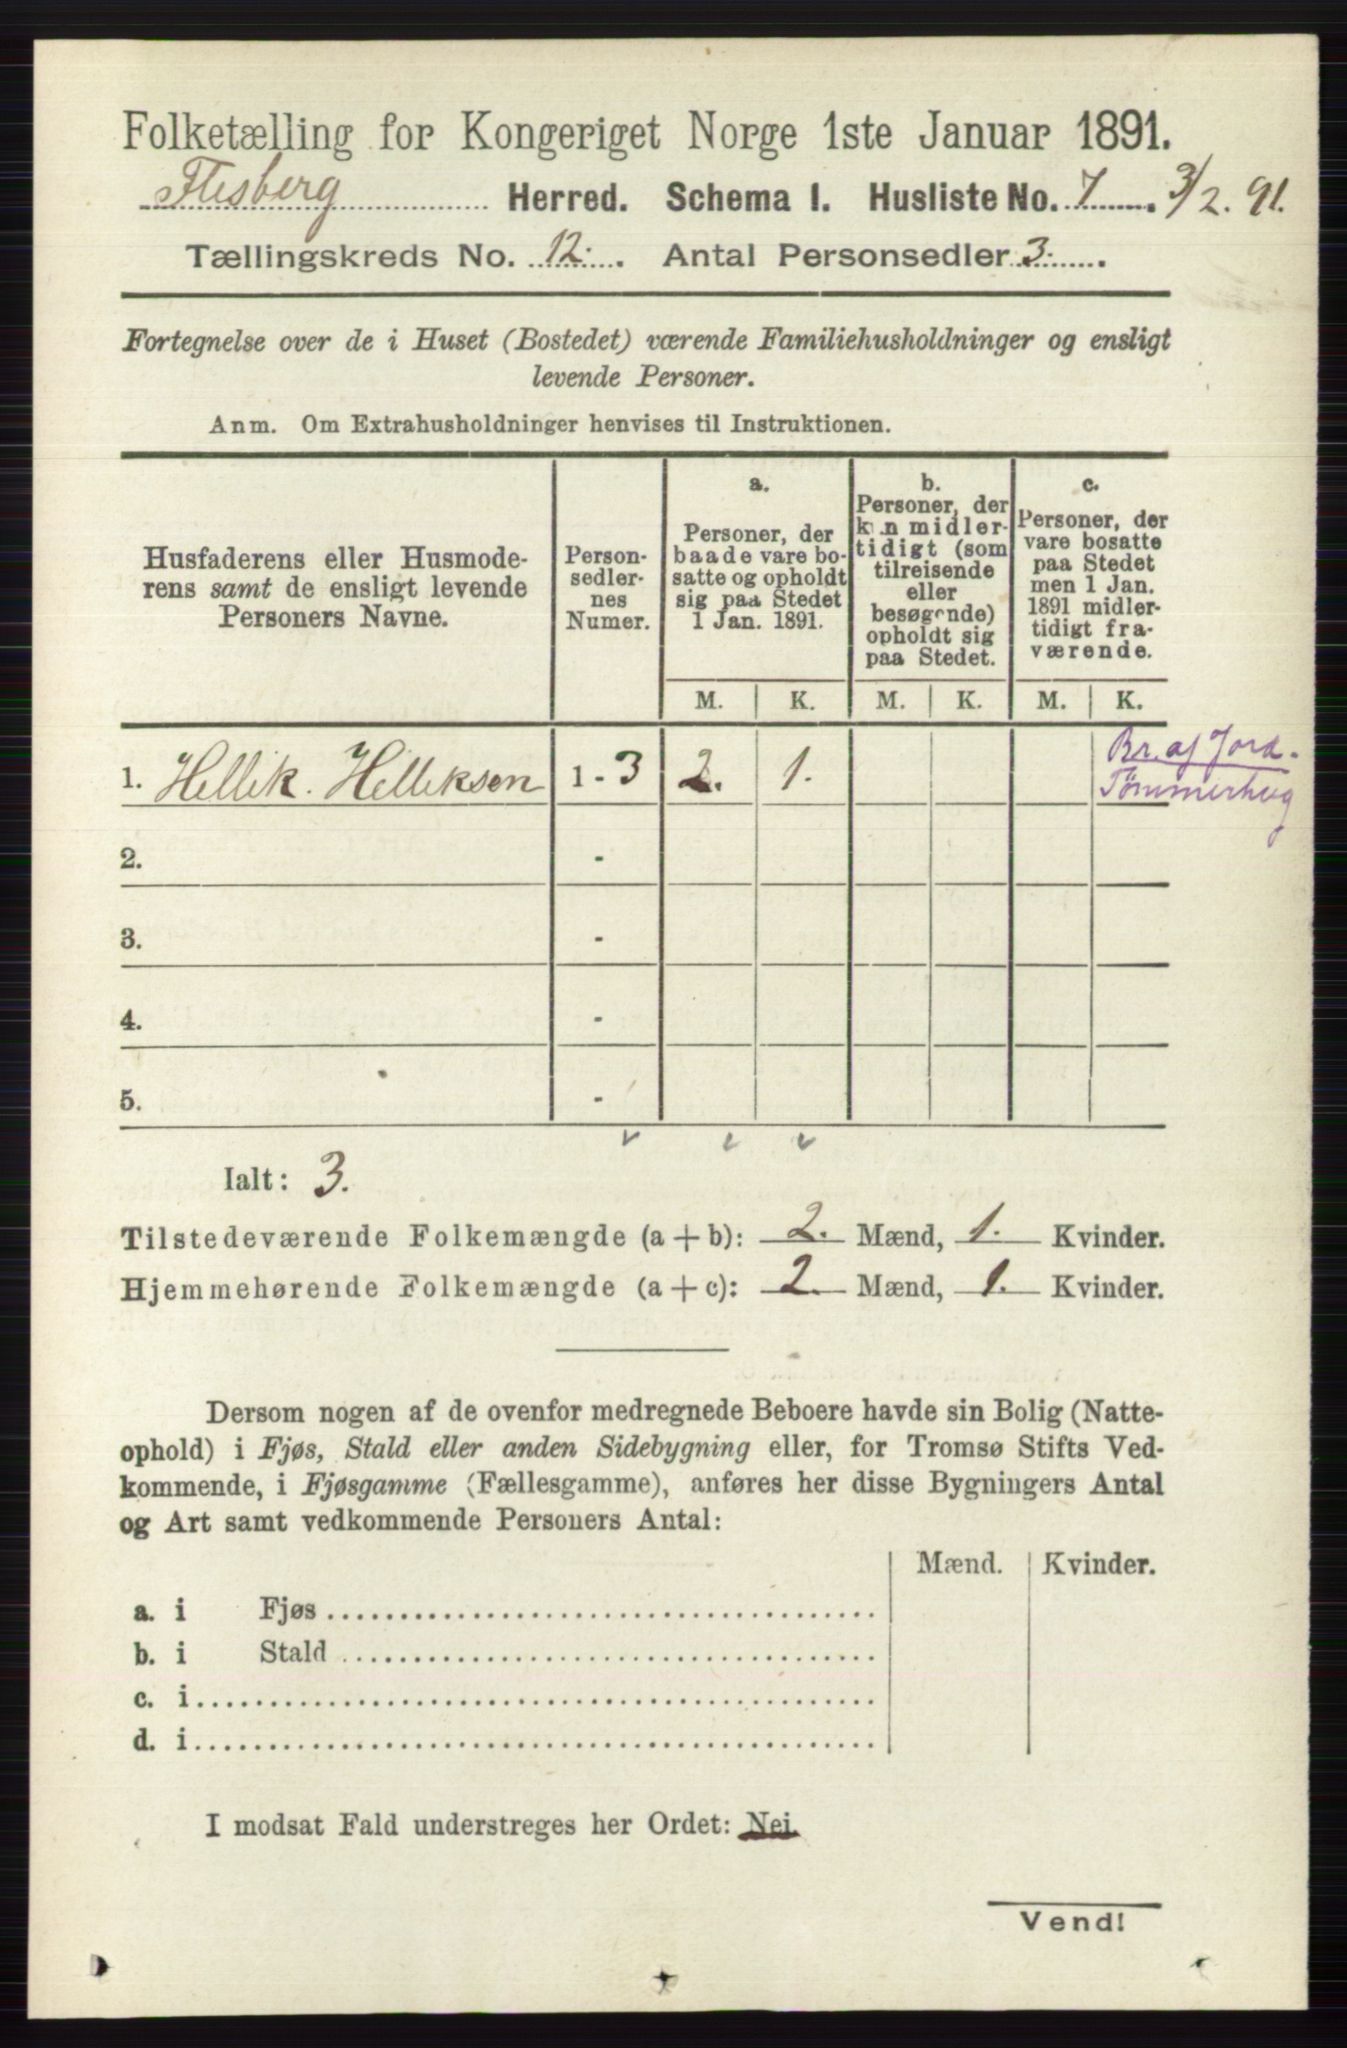 Folketælling for Kongeriget Norge 1ste Januar 1891.
Flesberg Herred. Schema I. Husliste No. 7. 3/2. 91.
Tællingskreds No. 12. Antal Personsedler 3.
Fortegnelse over de i Huset (Bostedet) værende Familiehusholdninger og ensligt
levende Personer.
Anm. Om Extrahusholdninger henvises til Instruktionen.
Husfaderens eller Husmode-
rens samt de ensligt levende
Personers Navne.
Person-
sedler-
nes
Numer.
a.
Personer, der
baade vare bo-
satte og opholdt
sig paa Stedet
1 Jan. 1891.
b.
Personer, der
kun midler-
tidigt (som
tilreisende
eller
besøgende)
opholdt sig
paa Stedet.
c.
Personer, der
vare bosatte
paa Stedet
men 1 Jan.
1891 midler-
tidigt fra-
værende.
M. K. M. K. M. K.
1. Hellik. Helleksen 1 - 3 2. 1.
Br. af Jord.
Tömmerhug
2. -
3. -
4. -
5. -
Ialt: 3.
Tilstedeværende Folkemængde (a + b): 2. Mænd, 1. Kvinder.
Hjemmehørende Folkemængde (a + c): 2. Mænd, 1. Kvinder.
Dersom nogen af de ovenfor medregnede Beboere havde sin Bolig (Natte-
ophold) i Fjøs, Stald eller anden Sidebygning eller, for Tromsø Stifts Ved-
kommende, i Fjøsgamme (Fællesgamme), anføres her disse Bygningers Antal
og Art samt vedkommende Personers Antal:
Mænd. Kvinder.
a. i Fjøs
b. i Stald
c. i
d. i
I modsat Fald understreges her Ordet: Nei.
Vend!